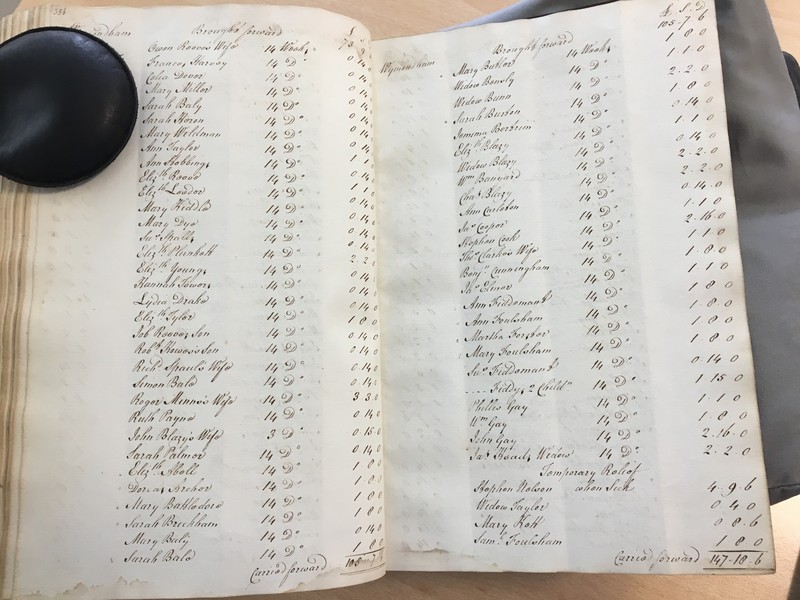 334
Brought forward
£ S D
Owen Roove's Wife 14 Weeks
Frances Harvey 14 Do
Celia Dover 14 Do
Mary Miller 14 Do
Sarah Baly 14 Do
Sarah Horen 14 Do
Mary Weldman 14 Do
Ann Taylor 14 Do
Ann Hobbings 14 Do
Elizth Roove 14 Do
Elizth Loador 14 Do
Mary Kiddle 14 Do
Mary Dye 14 Do
14 Do
Elizth Plunkett 14 Do
Elizth Youngs 14 Do
Hannah Towers 14 Do
Lydia Drake 14 Do
Elizth Tyler 14 Do
Job Rooves Son 14 Do
Robt Howes's Son 14 Do
Richd Spaul's Wife 14 Do
Simon Bale 14 Do
Roger Minns's Wife 14 Do 3 3 0
Ruth Payne 14 Do 0 14 0
John Blazy's Wife 3 Do 0 15 0
Sarah Palmer 14 Do 0 14 0
Elizth Aboll 14 Do 1 8 0
Dorcas Archer 14 Do 1 8 0
Mary Battledore 14 Do 1 8 0
Sarah Breckham 14 Do 1 8 0
Mary Baly 14 Do 0 14 0
Sarah Bale 14 Do 1 8 0
Carried forward 105 7 6
£ S D
Wymondham Brought forward 105-7-6
Mary Butler 14 Weeks 1 8 0
Widow Bensly 14 Do 1 1 0
Widow Bunn 14 Do 2-2-0
Sarah Burton 14 Do 1 8 0
Jemima Bertram 14 Do 0 14 0
Elizth Blazy 14 Do 1 1 0
Widow Blazy 14 Do 0 14 0
Wm Banyard 14 Do 2-2-0
Chas Blazy 14 Do 2-2-0
Ann Carleton 14 Do 0 14 0
Jno Cooper 14 Do 1-1-0
Stephen Cook 14 Do 2-16-0
Thos Clarke's Wife 14 Do 1 1 0
Benjn Cunningham 14 Do 1 8 0
Jno Elinor 14 Do 1 1 0
Ann Fiddomant 14 Do 1 8 0
Ann Foulsham 14 Do 1 8 0
Martha Forster 14 Do 1 8 0
Mary Foulsham 14 Do 1 8 0
Jno Fiddomant 14 Do 0 14 0
---- Fiddy, 2 Childn 14 Do 1 15 0
Phillis Gay 14 Do 1-1-0
Wm Gay 14 Do 1-8-0
John Gay 14 Do 2-16-0
Widow 14 Do 2-2-0
Temporary Relief
Stephen Nelson when Sick 4-9-6
Widow Taylor 0 4 0
Mary Kett 0 8 6
Saml Foulsham 1 8 0
Carried forward 147-18-6